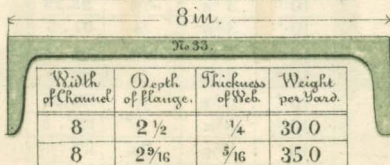 8 in.
No 33.
Width of Channel Depth of Flange. Thickness of Web. Weight per Yard.
8 2 1/2 1/4 30 0
8 2 9/16 5/16 35.0